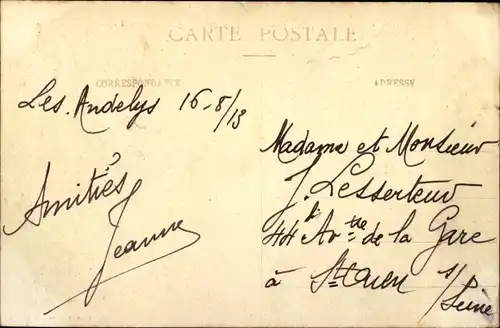 CARTE POSTALE
CORRESPONDANCE
ADRESSE
Les Andelys 16-8/13
Amitiés
Jeanne
Madame et Monsieur
J. Lesserteur
44 Avue de la Gare
à St Ouen s/
Seine